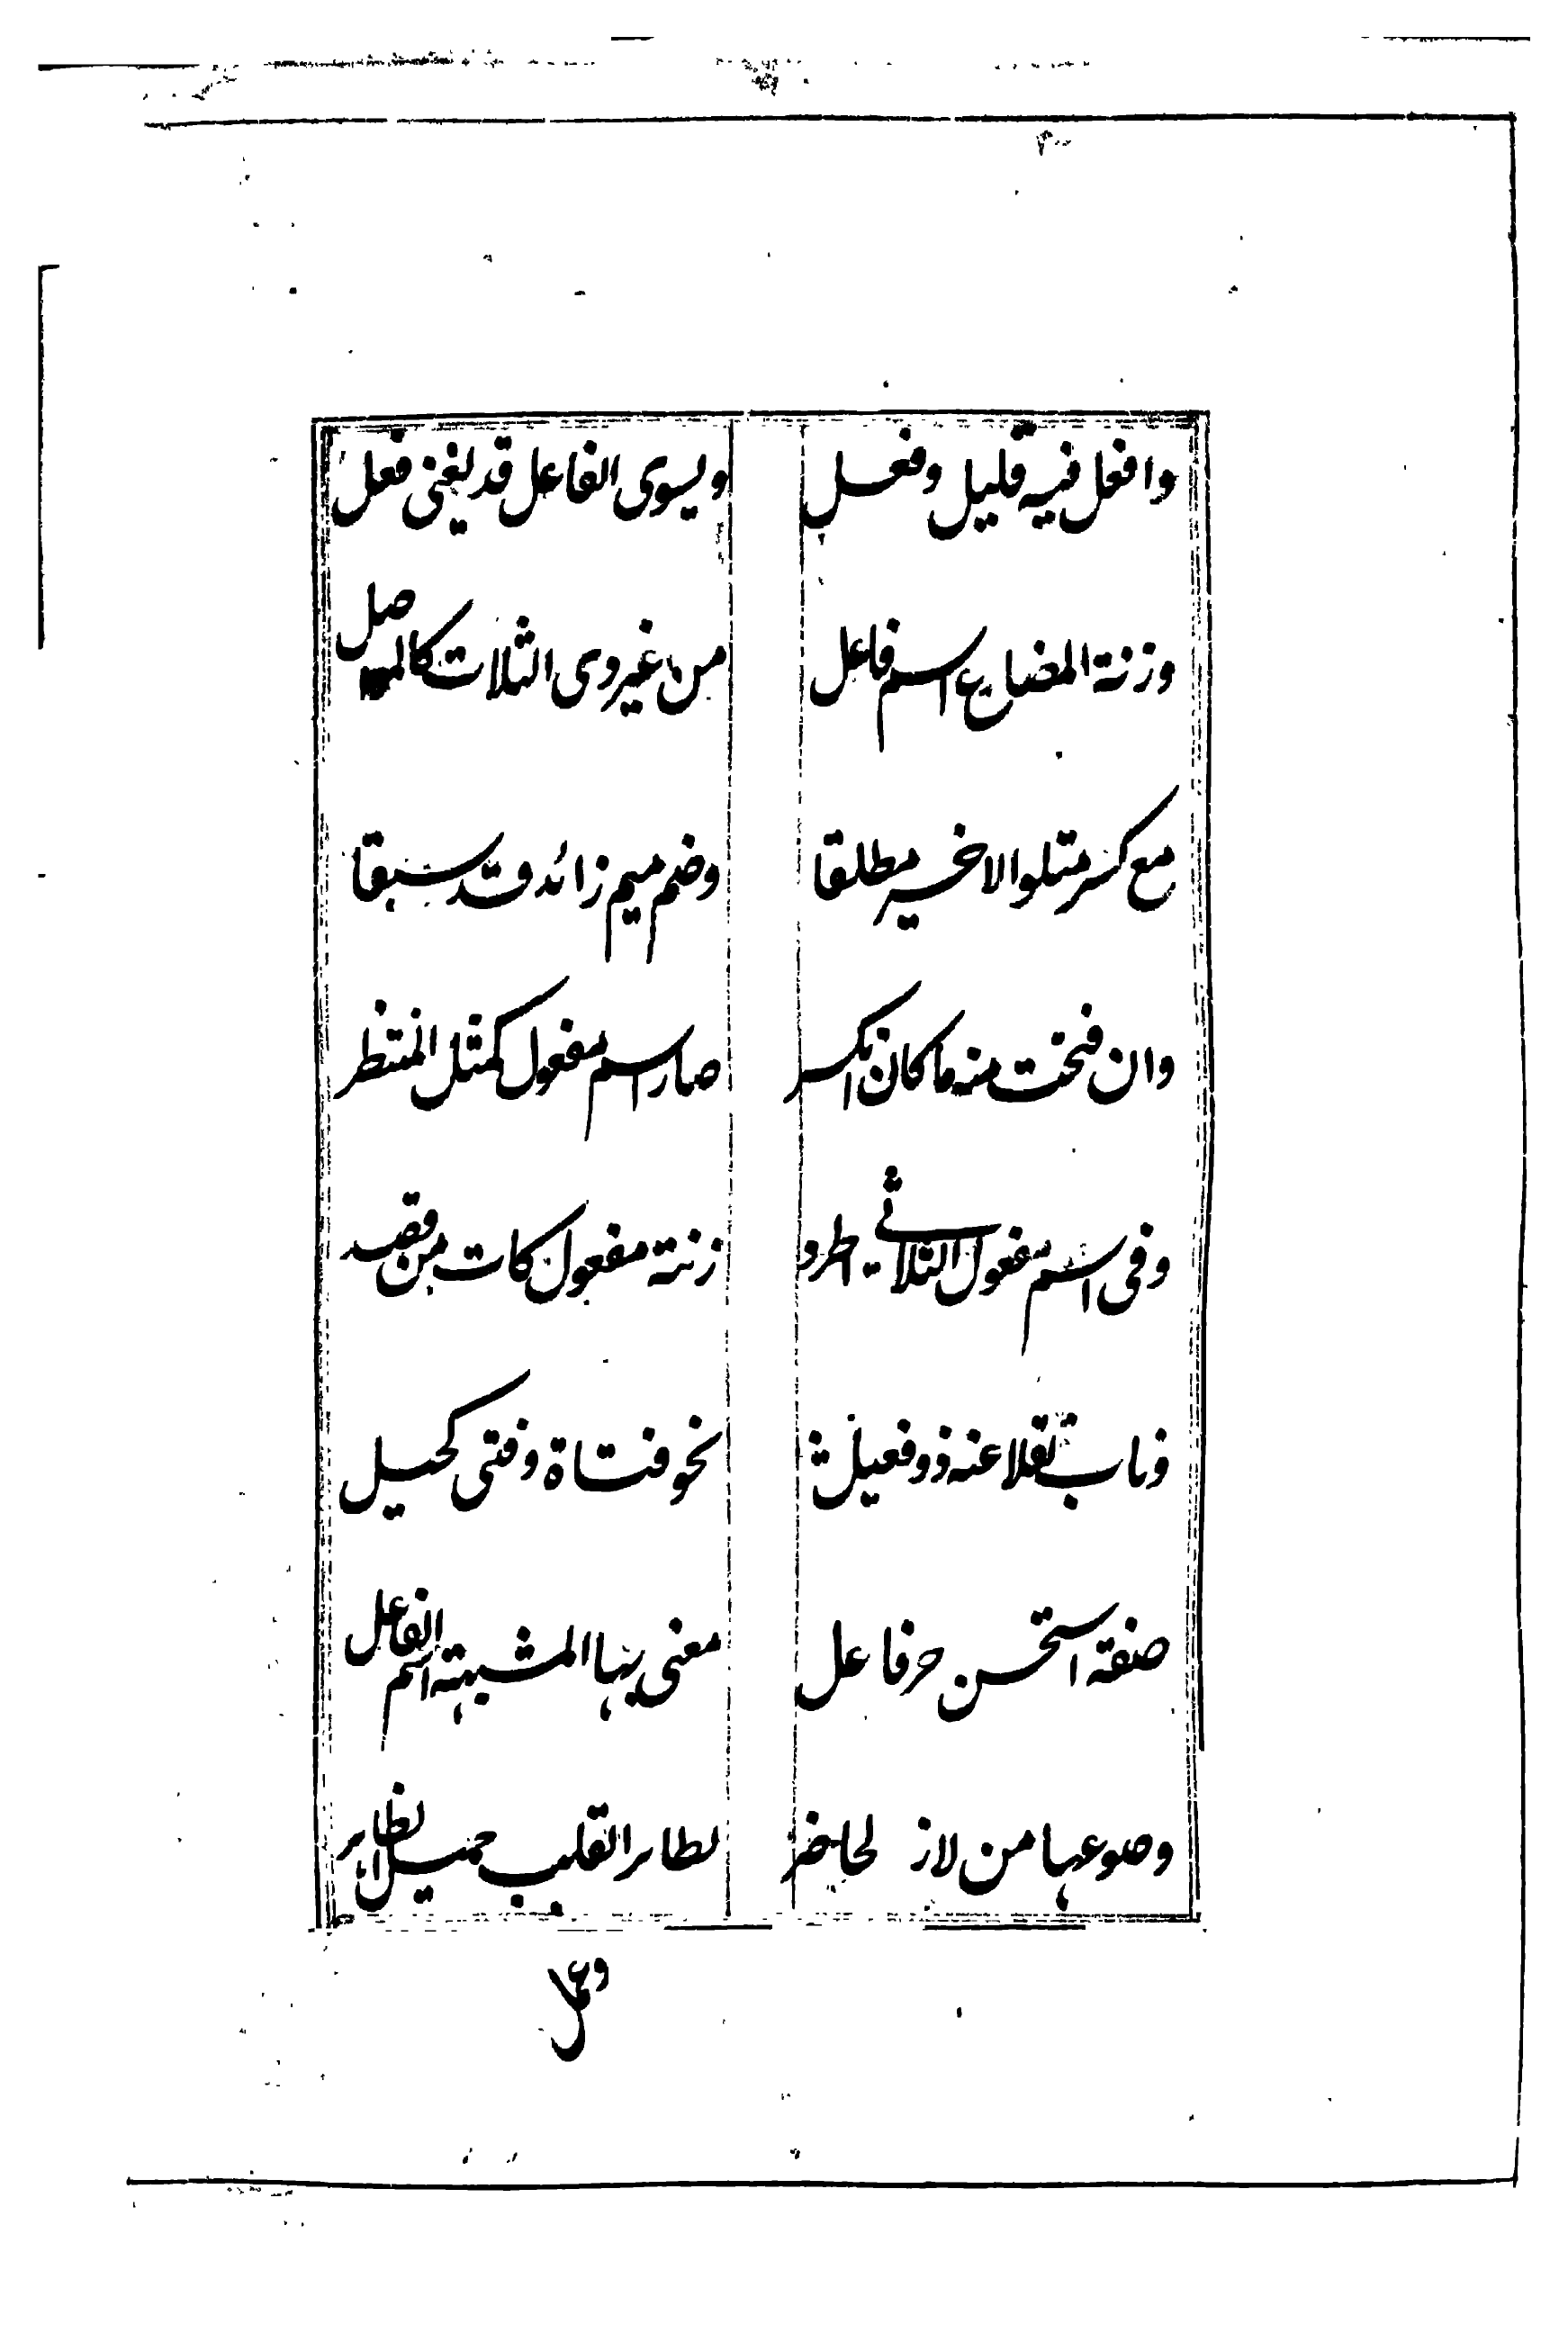 وافعل فيه قليل وفعل ويسوى الفاعل قد يغنى فعل
وزنة المضارع اسم فاعل من غير وى الثلاث كالمواصل
مع كسر متلو الاخير مطلقا وضم ميم زائد قد سبقا
وان فتحت منه ما كان انكسر صار اسم مفعول كمثل المنتظر
وفى اسم مفعول الثلاثي اطرد زنة مفعول كات من قصد
وناب نقلا عنه ذو فعيل نحو فتاة وفتى كحيل
صفة استحسن جر فاعل معنى بها المشبهة اسم الفاعل
وصوعها من لاز لحاضر لطاهر القلب جميل الظاهر
وعمل